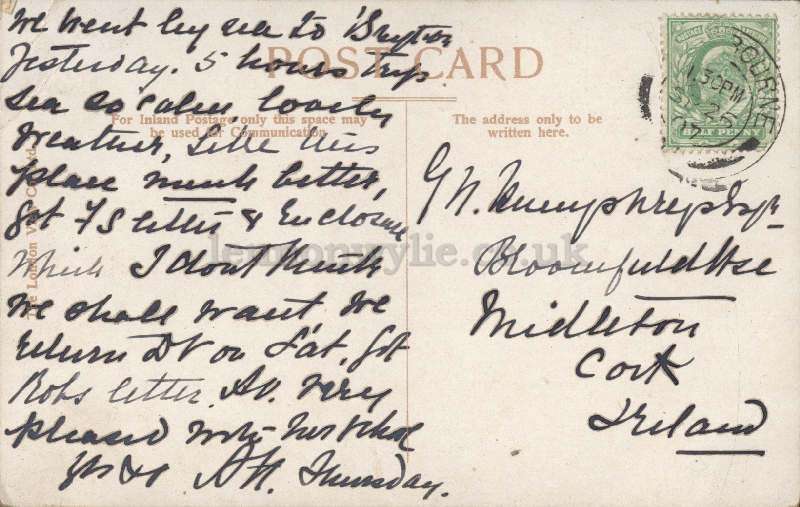 We went by sea to Bryton
Yesterday. 5 hours trip
Sea so calm, lovely
Weather, Like this
place much better,
got F's letter & Enclosure
Which I dont think
We shall want We
return DV on Sat. Got
Robs letter. very
pleased with
Thursday.
POST CARD
For Inland Postage only this space may
be used for Communication.
The address only to be
written here.
The London View Co Ltd
POSTAGE
HALF PENNY
BOURNE
1.30PM
G N. Humphreys Esqr
Bloomfield Hse
Middleton
Cork
Ireland
lennonwylie.co.uk